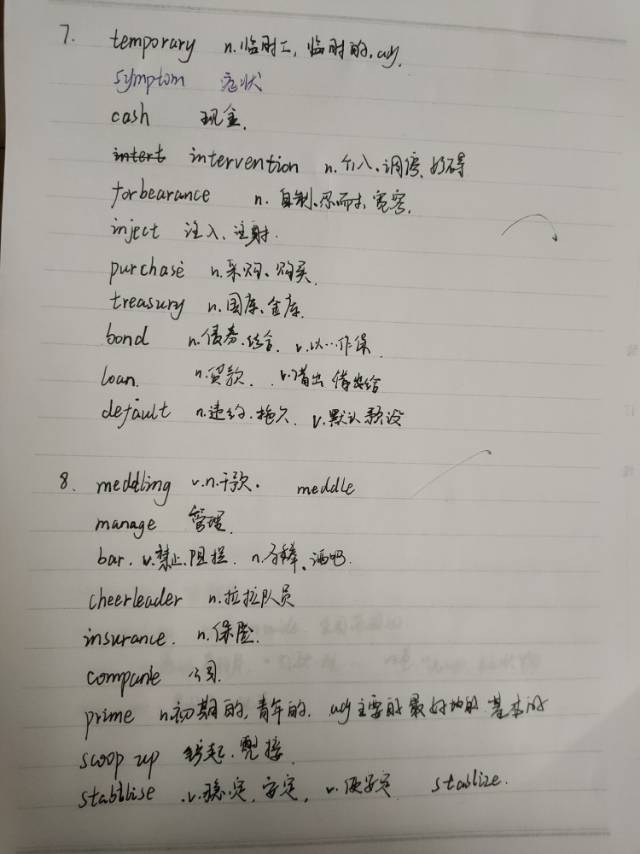 7. temporary n.临时工, 临时的.adj.
symptom 症状
cash 现金.
intert intervention n.介入.调停.妨碍
forbearance n.自制.忍耐.宽容.
inject 注入.注射.
purchase n.采购.购买.
treasury n.国库.金库.
bond n.债券.结合. v.以…作保.
loan. n.贷款. v.借出 借出给
default n.违约.拖欠. v.默认 预设
8. meddling v.n.干预. meddle
manage 管理.
bar. v.禁止.阻拦. n. 酒吧.
cheerleader n.拉拉队员
insurance. n.保险.
companie 公司.
prime n.初期的,青年的. adj主要的 最好的 基本的
scoop up
stabilise .v.稳定.安定. v.使安定 stablize.